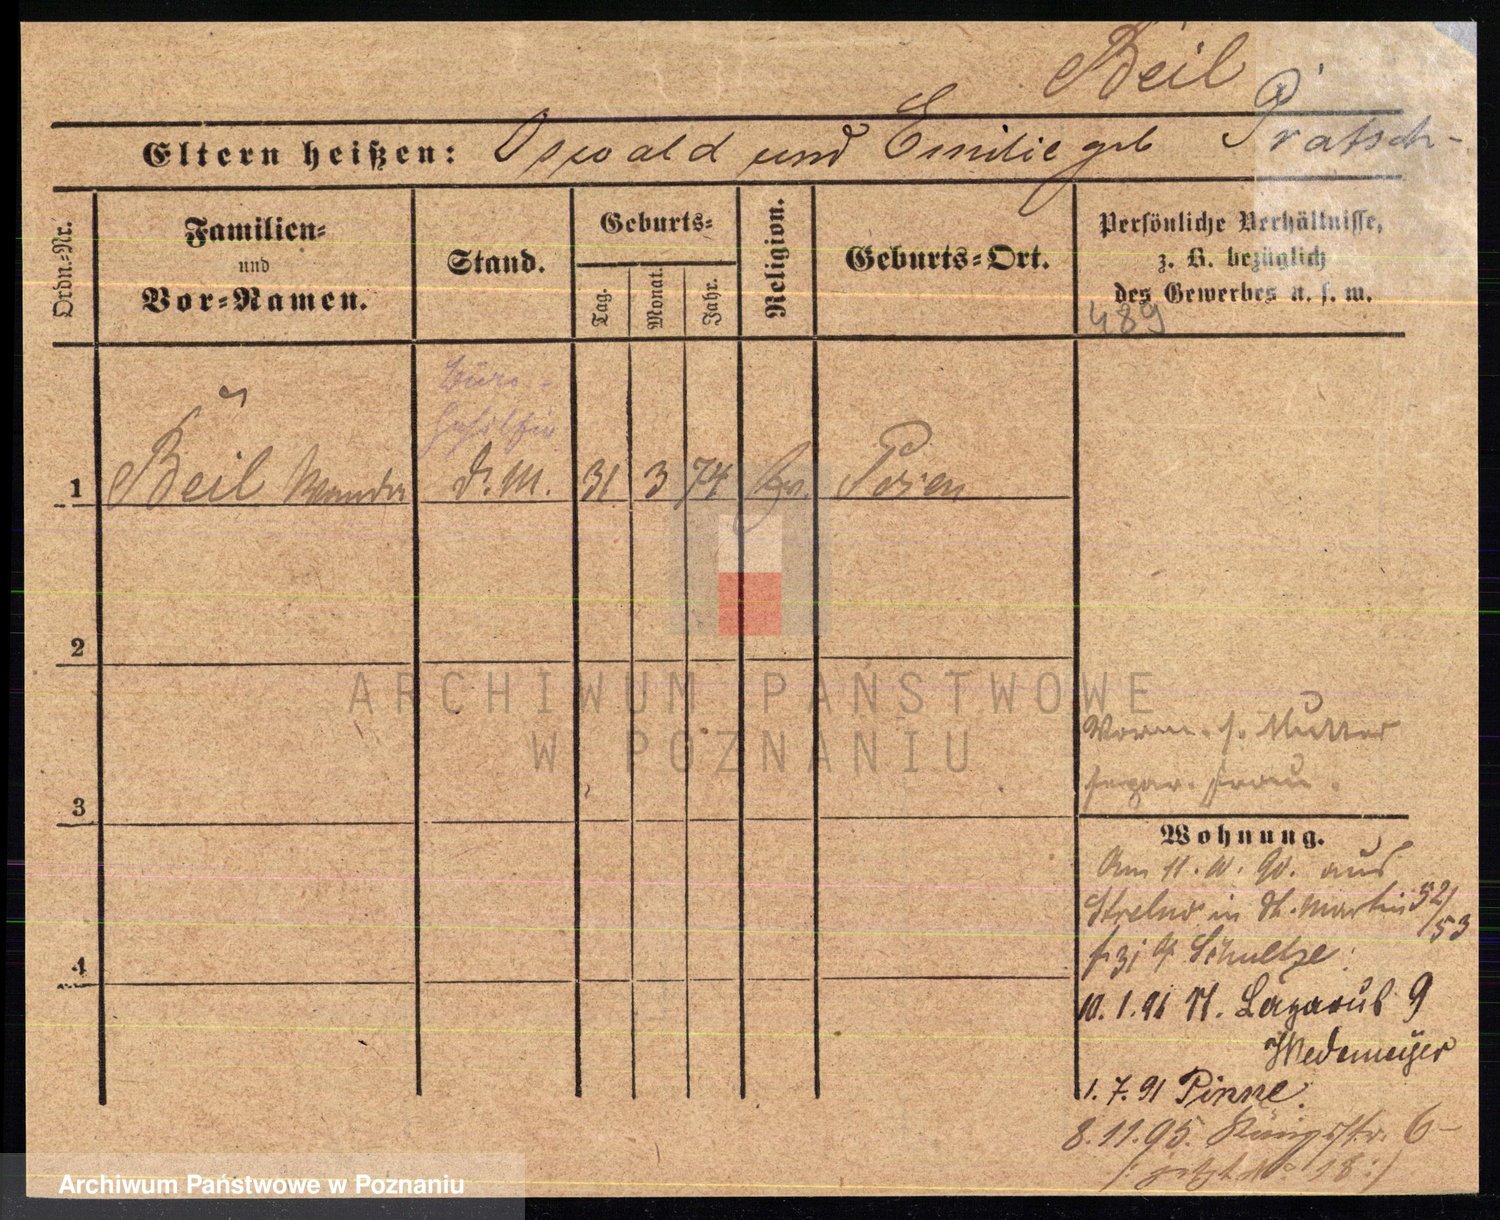 Beil
Eltern heißen: Oswald und Emilie geb Pratsch-
Ordn.-Nr.
Familien-
und
Vor-Namen.
Stand.
Geburts-
Tag.
Monat.
Jahr.
Religion.
Geburts-Ort.
Persönliche Verhältnisse,
z. B. bezüglich
des Gewerbes u. s. w.
489
Büro-
gehilfin
1 Beil Wanda d. M. 31 3 74 Ev. Posen
2
ARCHIWUM PAŃSTWOWE
W POZNANIU
Vorm. s. Mutter
separ. Frau.
3
Wohnung.
Am 11. 10. 90. aus
Strelno in St. Martin 52/53
b. Schultze
4
10. 1. 91 St. Lazarus 9
Wedemeyer
1. 7. 91 Pinne.
8. 11. 95. Königsstr. 6-
(: jetzt No 18 :)
Archiwum Państwowe w Poznaniu